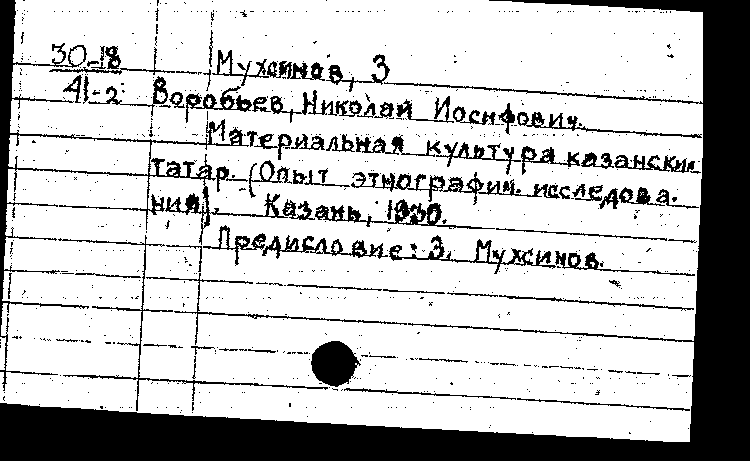 30-18
41-2
Мухсинов, З
Воробьев, Николай Иосифович.
Материальная культура казанских
татар. (Опыт этнографич. исследова-
ния). Казань, 1930.
Предисловие: З. Мухсинов.